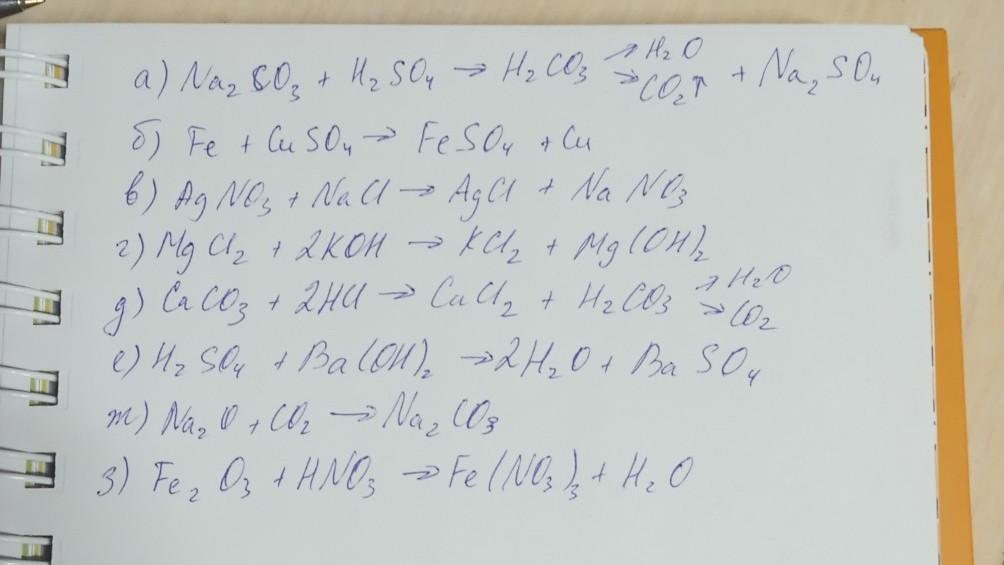 а) Na₂CO₃ + H₂SO₄ → H₂CO₃ →H₂O →CO₂↑ + Na₂SO₄
б) Fe + CuSO₄ → FeSO₄ + Cu
в) AgNO₃ + NaCl → AgCl + NaNO₃
г) MgCl₂ + 2KOH → KCl₂ + Mg(OH)₂
д) CaCO₃ + 2HCl → CaCl₂ + H₂CO₃ →H₂O →CO₂
е) H₂SO₄ + Ba(OH)₂ → 2H₂O + BaSO₄
ж) Na₂O + CO₂ → Na₂CO₃
з) Fe₂O₃ + HNO₃ → Fe(NO₃)₃ + H₂O